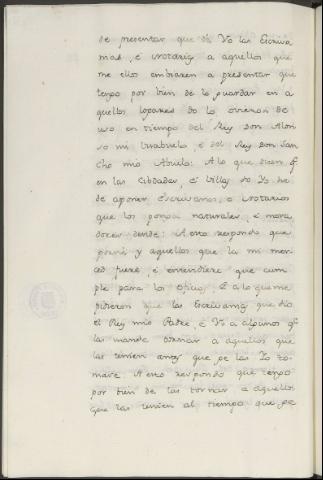 de presentar que dí Yo las Escriva
nias, é Notarias a aquellos que
me ellos embiaren a presentar que
tengo por bien de lo guardar en a
quellos logares do lo ovieron de
uso en tiempo del Rey Don Alon
so mi Visabuelo, é del Rey Don San
cho mio Abuelo: A lo que dicen q.
en las Cibdades, é Villas do Yo he
de aponer Escrivanos, é Notarios
que los ponga naturales, é mora
dores dende: A esto respondo que
porné y aquellos que la mi mer
ced fuere, é entendiere que cum
ple para los oficios. E a lo que me
pidieron que las Escrivanias que dio
el Rey mio Padre, é Yo a algunos q.
las mande tornar a aquellos que
las tenien antes que ge las Yo to
mare. A esto respondo que tengo
por bien de las tornar a aquellos
que las tenien al tiempo que ge